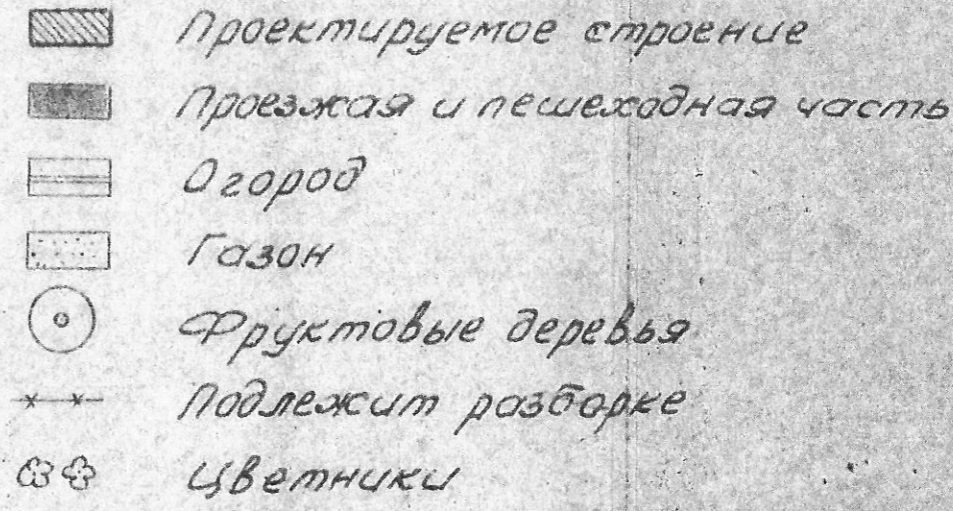 Проектируемое строение
Проезжая и пешеходная часть
Огород
Газон
Фруктовые деревья
Подлежит разборке
Цветники